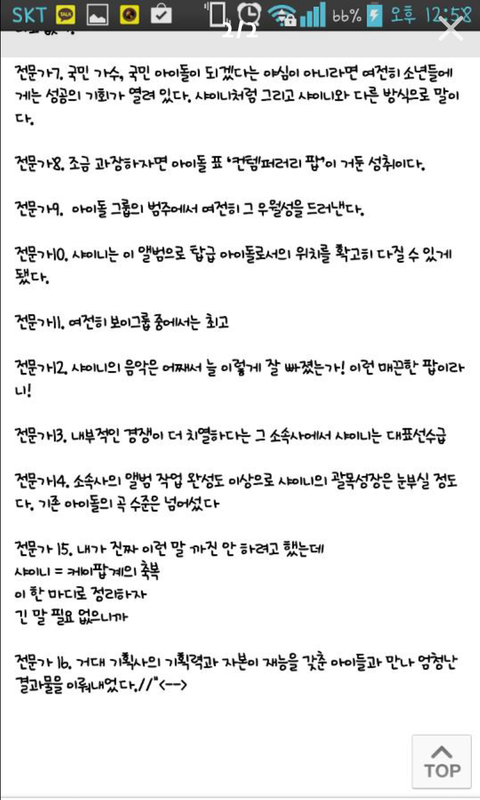 SKT 66% 오후 12:58
2/2
전문가7. 국민 가수, 국민 아이돌이 되겠다는 야심이 아니라면 여전히 소년들에
게는 성공의 기회가 열려 있다. 샤이니처럼 그리고 샤이니와 다른 방식으로 말이
다.
전문가8. 조금 과장하자면 아이돌 표 '컨템퍼러리 팝'이 거둔 성취이다.
전문가9. 아이돌 그룹의 범주에서 여전히 그 우월성을 드러낸다.
전문가10. 샤이니는 이 앨범으로 탑급 아이돌로서의 위치를 확고히 다질 수 있게
됐다.
전문가11. 여전히 보이그룹 중에서는 최고
전문가12. 샤이니의 음악은 어째서 늘 이렇게 잘 빠졌는가! 이런 매끈한 팝이라
니!
전문가13. 내부적인 경쟁이 더 치열하다는 그 소속사에서 샤이니는 대표선수급
전문가14. 소속사의 앨범 작업 완성도 이상으로 샤이니의 괄목성장은 눈부실 정도
다. 기존 아이돌의 곡 수준은 넘어섰다
전문가 15. 내가 진짜 이런 말 까진 안 하려고 했는데
샤이니 = 케이팝계의 축복
이 한 마디로 정리하자
긴 말 필요 없으니까
전문가 16. 거대 기획사의 기획력과 자본이 재능을 갖춘 아이들과 만나 엄청난
결과물을 이뤄내었다.//"<-->
TOP